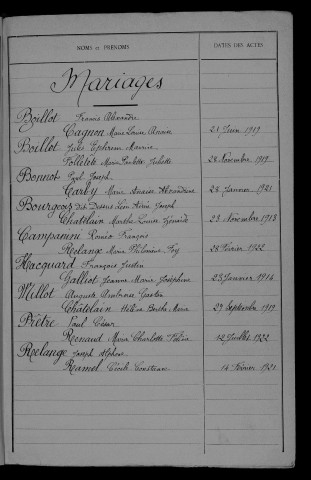 NOMS et PRÉNOMS
DATES DES ACTES
Mariages
Boillot Francis Alexandre
Cagnon Marie Louise Anaïse 21 Juin 1919
Boillot Jules Ephrem Maurice
Folletête Marie Juliette 28 Novembre 1919
Bonnot Paul Joseph
Carey Marie Anaïse Alexandrine 29 Janvier 1921
Bourgeois dit Dessus Léon Joseph
Châtelain Marthe Louise 23 Novembre 1918
Campanini Roméo François
Relange Marie Philomène Foÿ 28 Février 1922
Hacquard François Justin
Galliot Jeanne Marie Joséphine 28 Janvier 1914
Millot Auguste Ambroise Gaston
Châtelain Hélène Berthe Marie 27 Septembre 1919
Prêtre Paul César
Renaud Marie Charlotte 12 Juillet 1922
Relange Joseph Alphonse
Ramel Cécile Constance 14 Février 1921